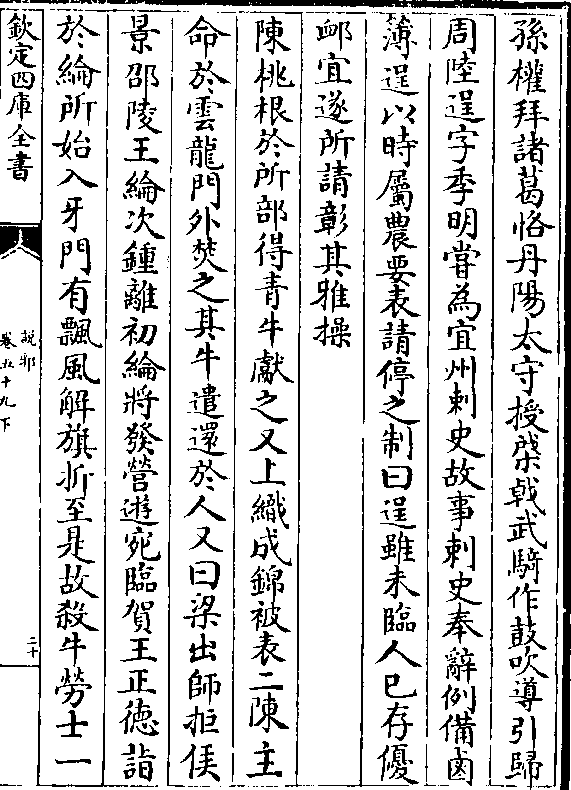 孫權拜諸葛恪丹陽太守授棨戟武騎作鼓吹導引歸
周陸逞字季明嘗為宜州刺史故事刺史奉辭例備鹵
薄逞以時屬農要表請停之制曰逞雖未臨人已存優
䘏宜遂所請彰其雅操
陳桃根於所部得青牛獻之又上織成錦被表二陳主
命於雲龍門外焚之其牛遣還於人又曰梁出師拒侯
景邵陵王綸次鍾離初綸將發營遊宛臨賀王正德詣
於綸所始入牙門有飄風解旗折至是故殺牛勞士一
欽定四庫全書
說郛
卷五十九下
二十